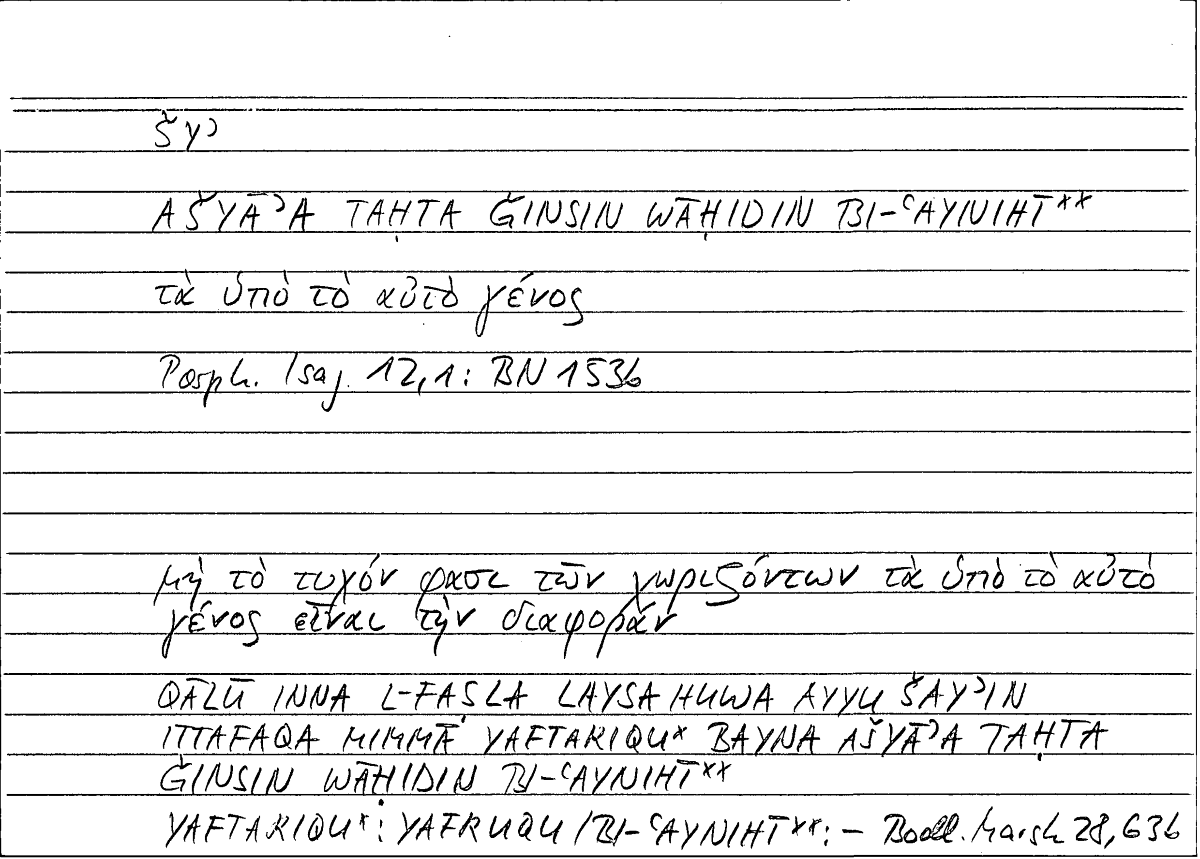 ŠYʾ
AŠYĀʾA TAḤTA ǦINSIN WĀḤIDIN BI-ʿAYNIHĪ××
τὰ ὑπὸ τὸ αὐτὸ γένος
Porph. Isag. 12,1: BN 1536
μὴ τὸ τυχόν φασι τῶν χωριζόντων τὰ ὑπὸ τὸ αὐτὸ
γένος εἶναι τὴν διαφοράν
QĀLŪ INNA L-FAṢLA LAYSA HUWA AYYU ŠAYʾIN
ITTAFAQA MIMMĀ YAFTARIQU× BAYNA AŠYĀʾA TAḤTA
ǦINSIN WĀḤIDIN BI-ʿAYNIHĪ××
YAFTARIQU×: YAFRUQU / BI-ʿAYNIHĪ××: – Bodl. Marsh 28,63b